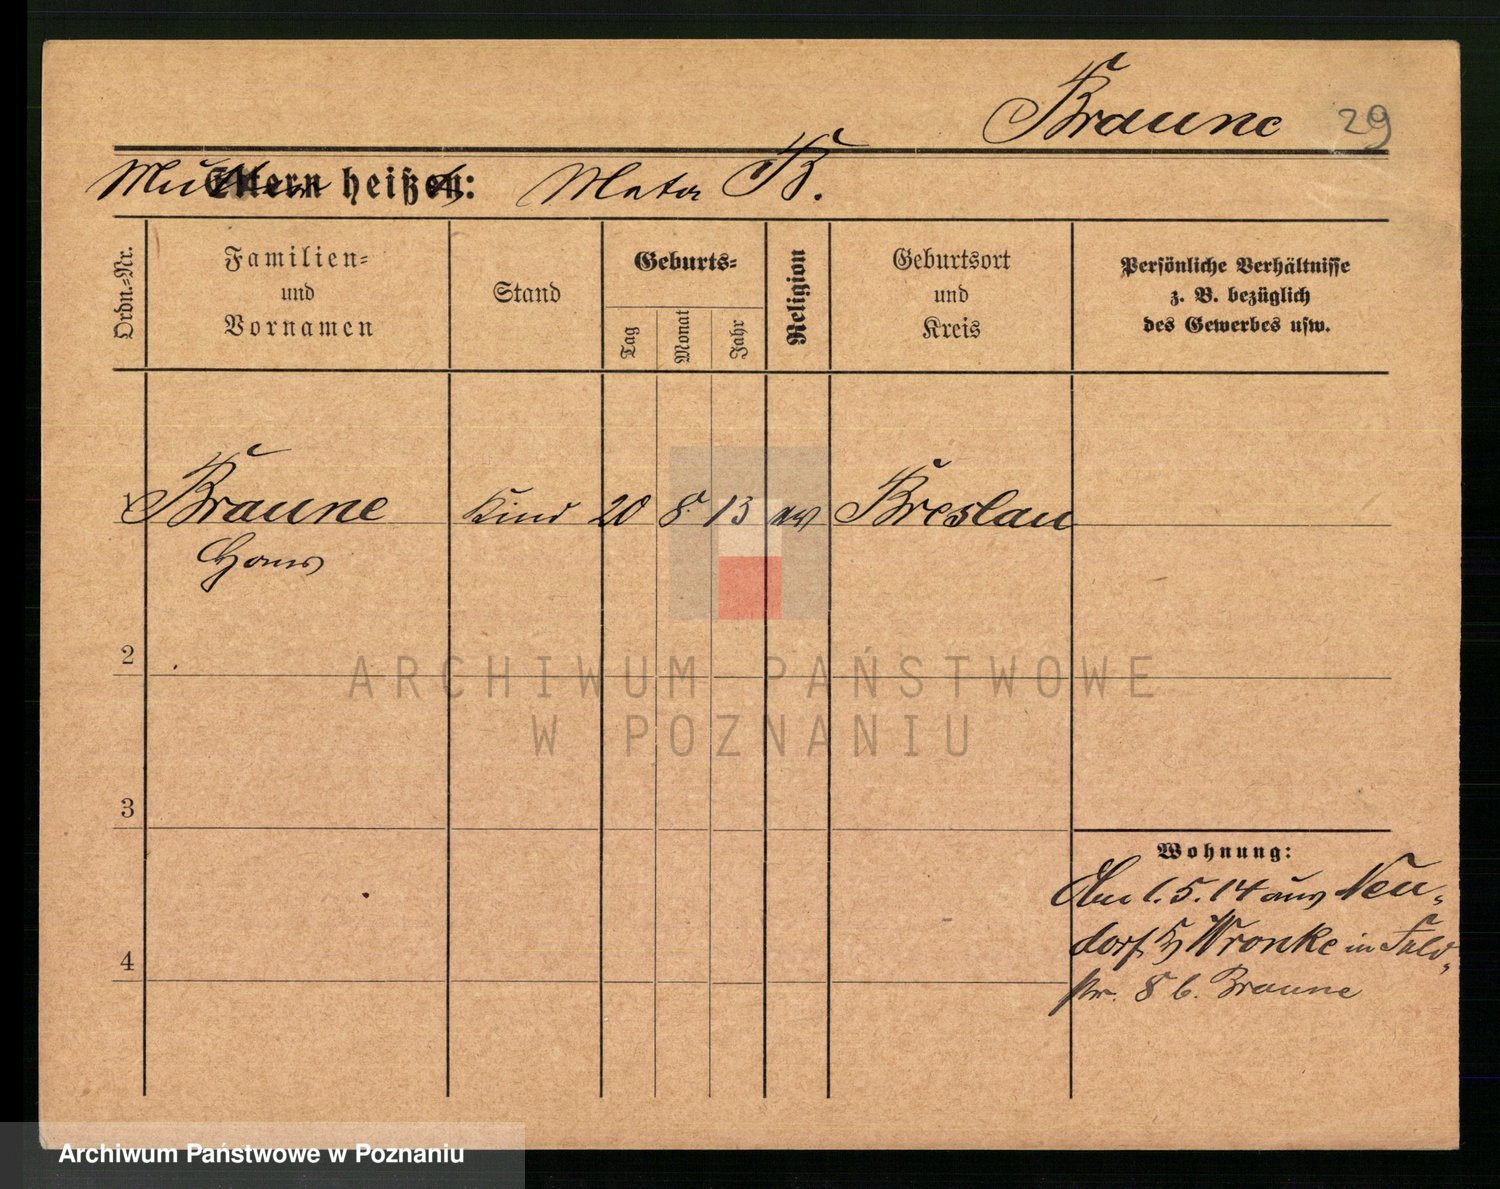 Braune 29
Mutter heißt: Meta B.
Ordn.-Nr.
Familien-
und
Vornamen
Stand
Geburts-
Tag
Monat
Jahr
Religion
Geburtsort
und
Kreis
Persönliche Verhältnisse
z. B. bezüglich
des Gewerbes usw.
1 Braune Kind 20 8. 13 ev Breslau
Hans
2
ARCHIWUM PAŃSTWOWE
W POZNANIU
3
Wohnung:
Am 1.5.14 aus Neu-
dorf b/ Wronke in Feld-
4
str. 8 b. Braune
Archiwum Państwowe w Poznaniu